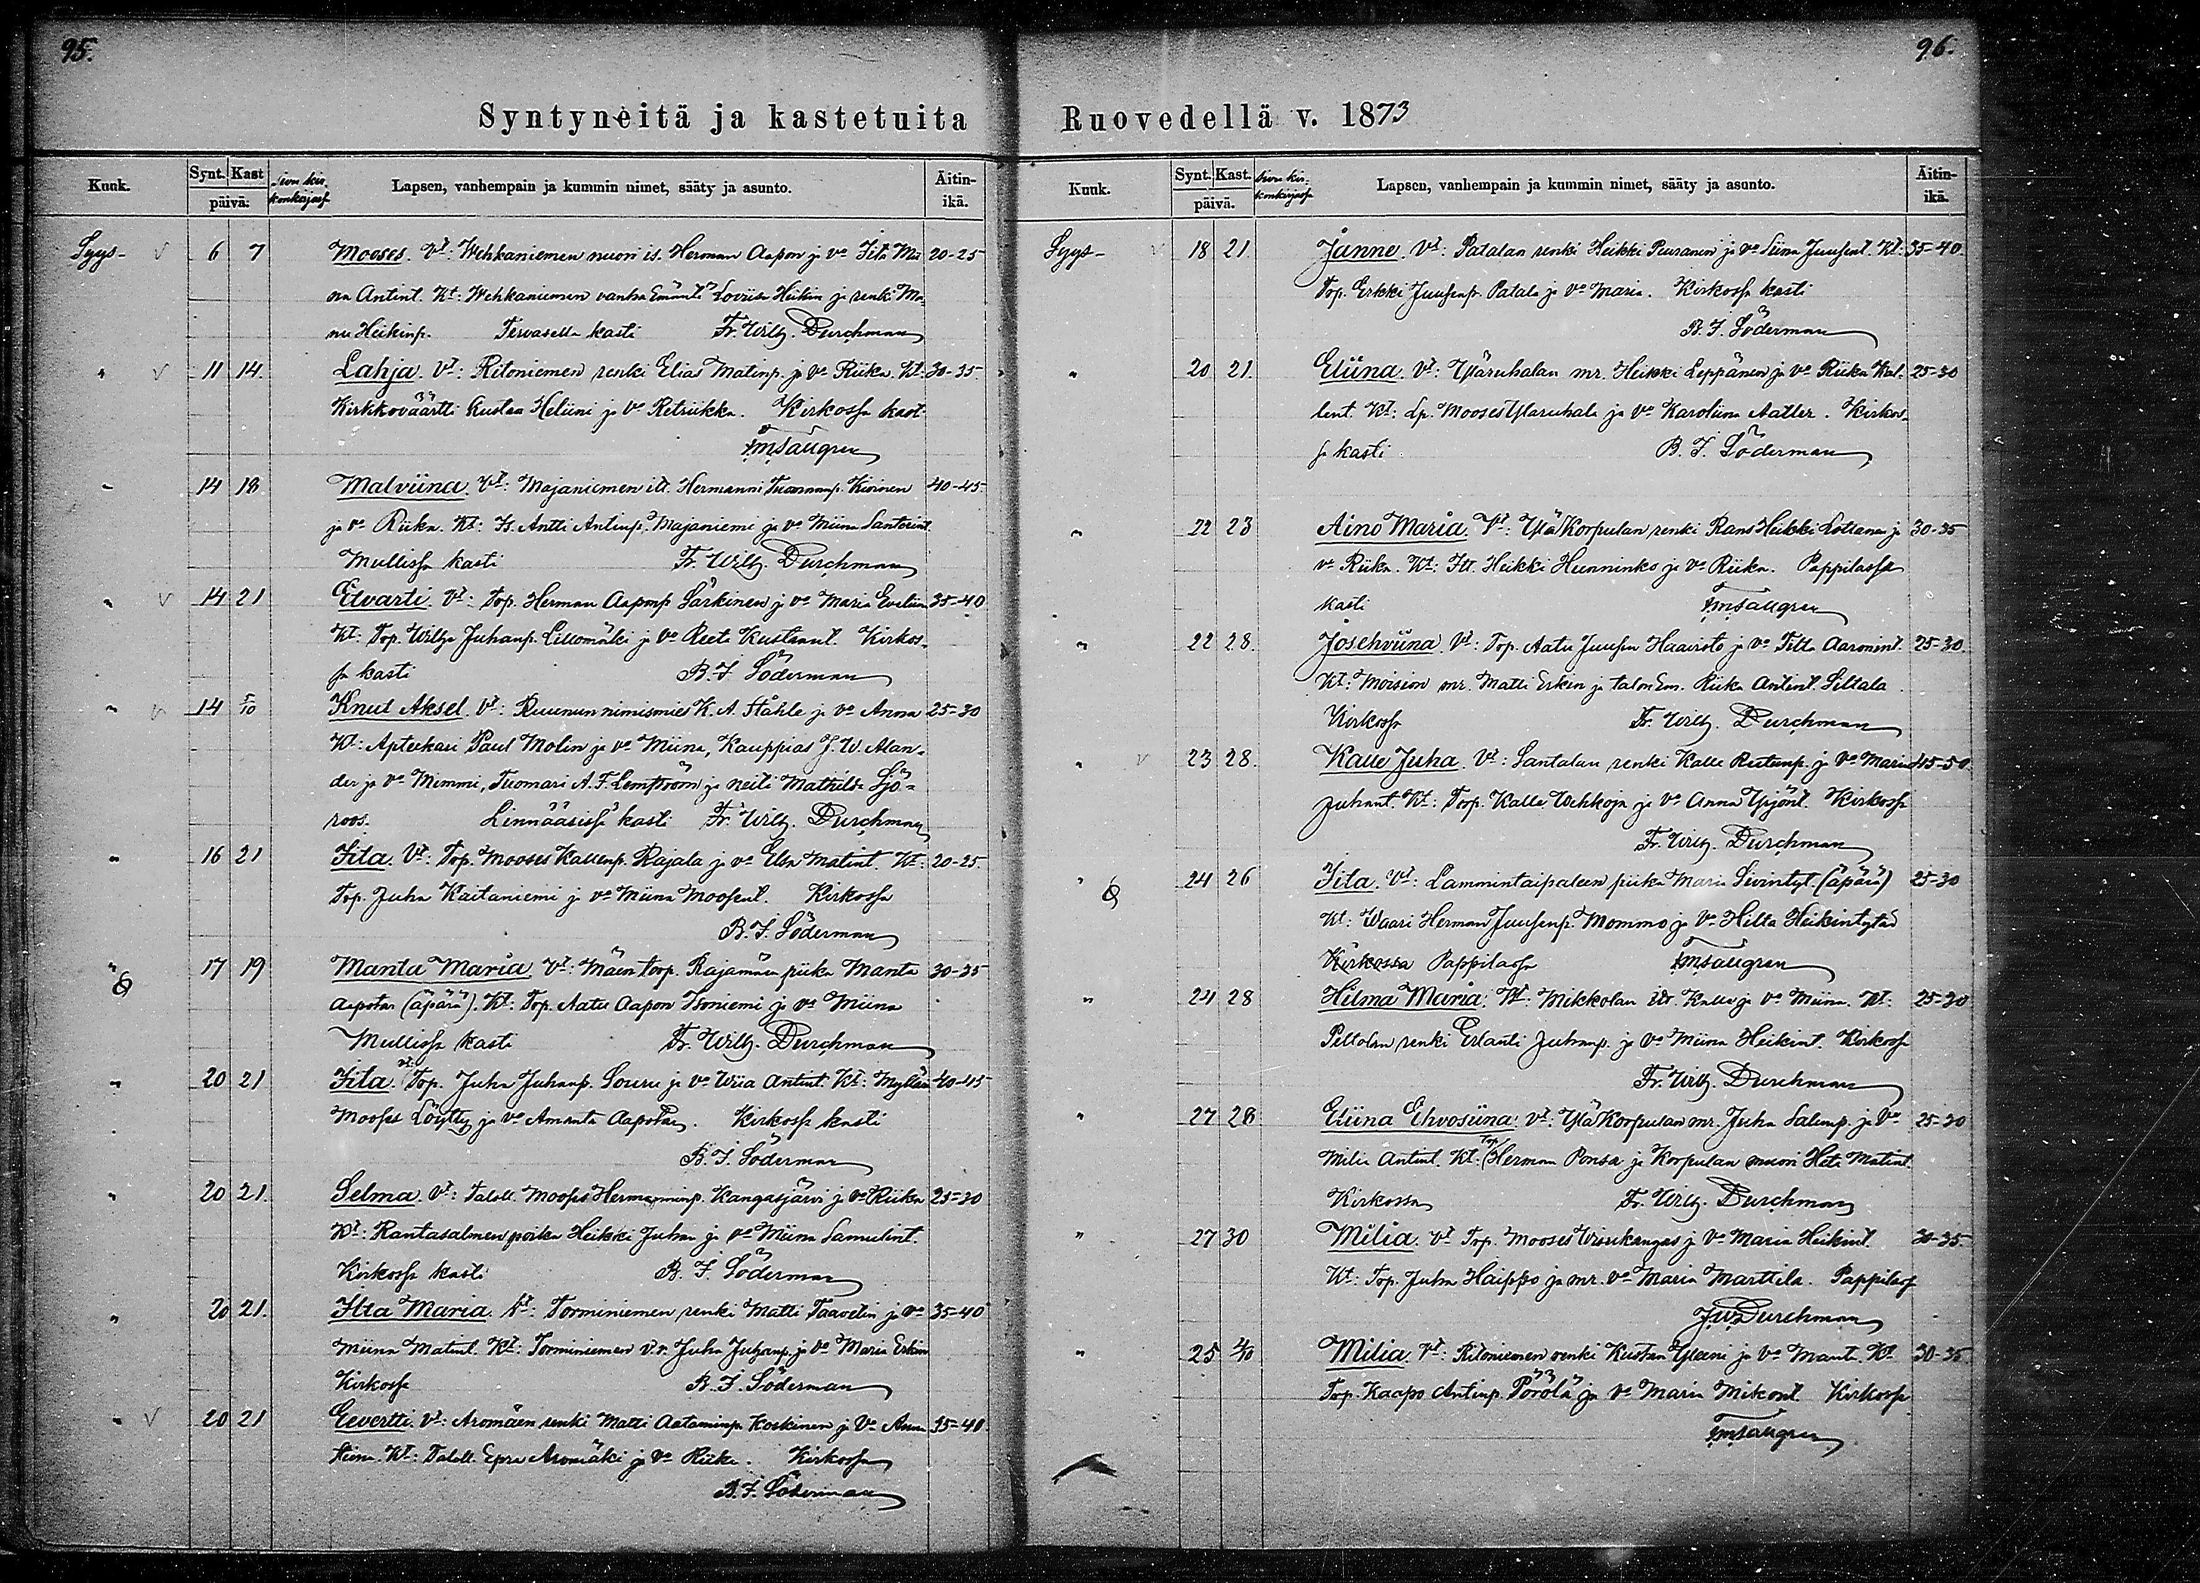 95.
Syntyneitä ja kastetuita
Kuuk. Synt. Kast päivä: Sivu kir- konkirjass. Lapsen, vanhempain ja kummin nimet, sääty ja asunto. Äitin- ikä.
Syys- 6 7 Mooses. Vt: Wehkaniemen nuori is. Herman Aapon j. vo Iita Ma- 20-25
ria Antint. Kt: Wehkaniemen vanha Emäntä Loviisa Heikin ja renki Ma-
nu Heikinp. Tervasella kasti Fr. Wilh. Durchman
" 11 14. Lahja. Vt: Ritoniemen renki Elias Matinp. ja vo Riika. Kt. 30-35.
Kirkkoväärtti Kustaa Heliini ja vo Retriikka. Kirkossa kast.
14 18. Malviina. Vt: Majaniemen itl. Hermanni Tuomanp. Kivinen 40-45.
ja vo Riika. Kt: Is. Antti Antinp. Majaniemi ja vo Miina
Mullissa kasti Fr. Wilh. Durchman
" 14 21 Etvarti. Vt: Top. Herman Aaponp. Särkinen j. vo Maria Eveliina 35-40
Kt: Top. Wilhja Juhanp. Lillomäki ja vo Reeta Kustaant. Kirkos-
sa kasti B. I. Söderman
" 14 5/10 Knut Aksel. Vt: Ruununnimismies K. A. Ståhle ja vo Anna 25-30
Kt: Apteekari Paul Molin ja vo Miina, Kauppias J. W. Alan-
der ja vo Mimmi, Tuomari A. F. Lemström ja neiti Mathilda Sjö-
roos. Linnääsissä kasti Fr. Wilh. Durchman
" 16 21 Iita. Vt: Top. Mooses Kallenp. Rajala j. vo Elsa Matint. Kt: 20-25.
Top. Juha Kaitaniemi ja vo Miina Moosent. Kirkossa
B. I. Söderman
" 17 19 Manta Maria. Vt: Mäen torp. Rajamäen piika Manta 30-35
Aapotar (äpärä). Kt: Top. Aatu Aapon Isoniemi ja vo Miina
Mullissa kasti Fr. Wilh. Durchman
" 20 21 Iita. Vt. Top. Juha Juhanp. Souru ja vo Wiia Antint. Kt: 40-45
Mooses Löytty ja vo Amanta Aapotar. Kirkossa kasti
B. I. Söderman
" 20 21. Selma. Vt: Taloll. Mooses Hermanninp. Kangasjärvi ja vo Riika 25-30
Kt: Rantasalmen poika Heikki Juhan ja vo Miina Samulint.
Kirkossa kasti B. I. Söderman
" 20 21. Ilta Maria. Vt: Torminiemen renki Matti Taavetin ja vo 35-40
Miina Matint. Kt: Torminiemen v.r. Juha Juhanp. ja vo Maria Erkin
Kirkossa B. I. Söderman
" 20 21 Eevertti. Vt: Aromäen renki Matti Aataminp. Koskinen ja vo Anna 35-40.
Kt: Taloll. Epra Aromäki ja vo Riika. Kirkossa
B. I. Söderman
96.
Ruovedellä v. 1873
Kuuk. Synt. Kast. päivä. Sivu kir- konkirjassa Lapsen, vanhempain ja kummin nimet, sääty ja asunto. Äitin- ikä.
Syys- 18 21. Janne. Vt: Patalan renki Heikki Puuranen ja vo Liina Juusent. Kt: 35-40.
Top. Erkki Juusenp. Patala ja vo Maria. Kirkossa kasti
B. I. Söderman
" 20 21. Eliina. Vt: Yläruhalan mr. Heikki Leppänen ja vo Riika Kal- 25-30
lent. Kt: Lp. Mooses Ylaruhala ja vo Karoliina Aatler. Kirkos-
sa kasti B. I. Söderman
" 22 23 Aino Maria. Vt: Ylä Korpulan renki Rans Heikki Lottanen ja 30-35
vo Riika. Kt: Itl. Heikki Hunninko ja vo Riika. Pappilassa
kasti
" 22 28. Josehviina. Vt: Top. Aatu Juusen Haavisto ja vo Tilta Aaronint. 25-30.
Kt: Moision mr. Matti Erkin ja talon Em. Riika Antint. Siltala
Kirkossa Fr. Wilh. Durchman
" 23 28. Kalle Juha. Vt: Santalan renki Kalle ja vo Maria 45-50.
Juhant. Kt: Torp. Kalle Wehkoja ja vo Anna Yrjönt. Kirkossa
Fr. Wilh. Durchman
" 24 26 Iita. Vt: Lammintaipaleen piika Maria Sivintyt. (äpärä) 25-30
Kt: Waari Herman Juusenp. Mommo ja vo Helta Heikintytär
Kirkossa Pappilassa
" 24 28 Hilma Maria. Vt: Mikkolan itl. Kalle ja vo Miina. Kt: 25-30
Peltolan renki Erlanti Juhanp. ja vo Miina Heikint. Kirkossa
Fr. Wilh. Durchman
" 27 28 Eliina Ehvosiina. Vt: Ylä Korpulan mr. Juha Salemp. ja vo 25-30
Milia Antint. Kt: Top. Herman Ponsa ja Korpulan nuori Heta Matint.
Kirkossa Fr. Wilh. Durchman
" 27 30 Milia. Vt. Top. Mooses Wirukangas ja vo Maria Heikint. 30-35.
Kt: Top. Juha Haippo ja mr. vo Maria Marttila. Pappilass
Durchman
" 25 2/10 Milia. Vt: Ritoniemen renki Kustaa Yleeni ja vo Mant. Kt 30-35
Top. Kaapo Antinp. Pörölä ja vo Maria Mikont. Kirkossa